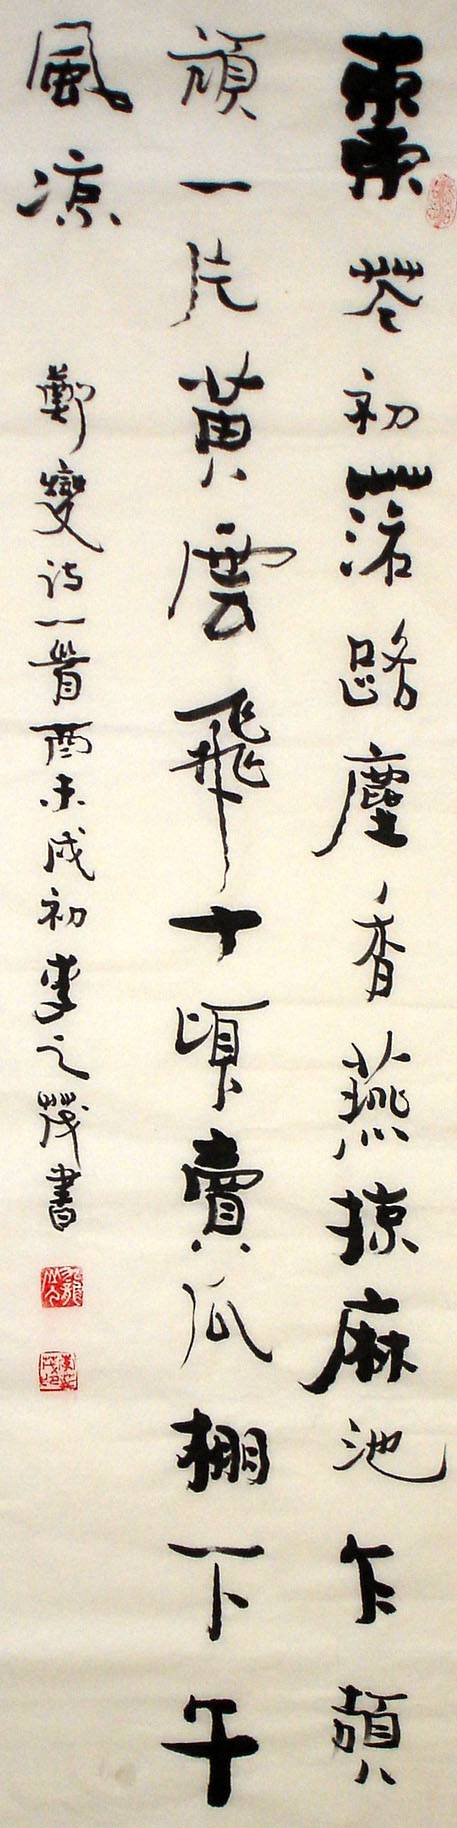 棗花初落路塵香燕掠麻池乍頡
頏一片黃雲飛十頃賣瓜棚下午
風凉
鄭燮詩一首酉未戌初李之茂書